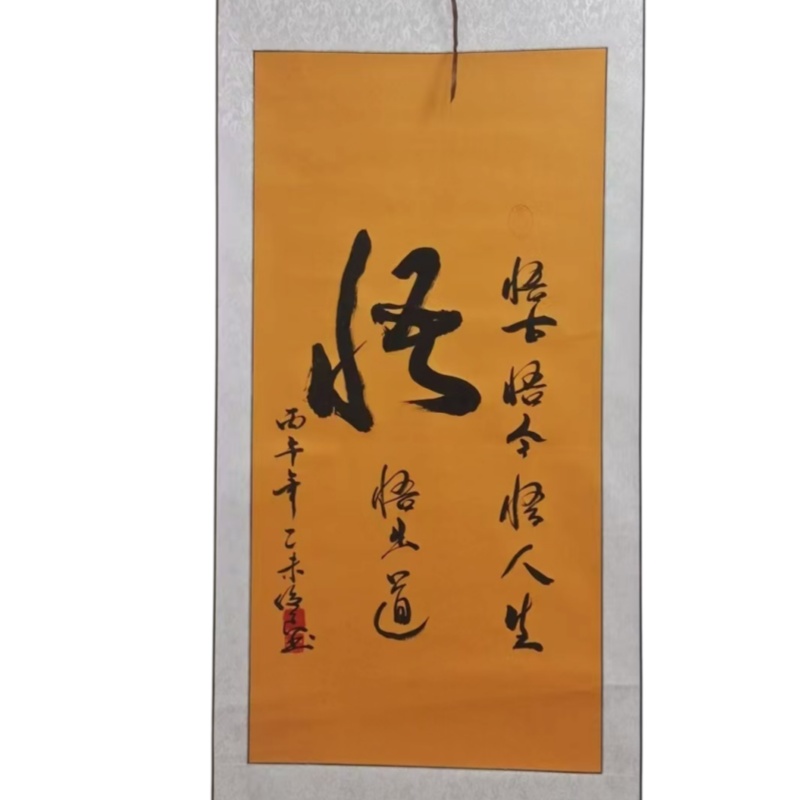 悟古悟今悟人生
悟
悟出道
丙午年乙未